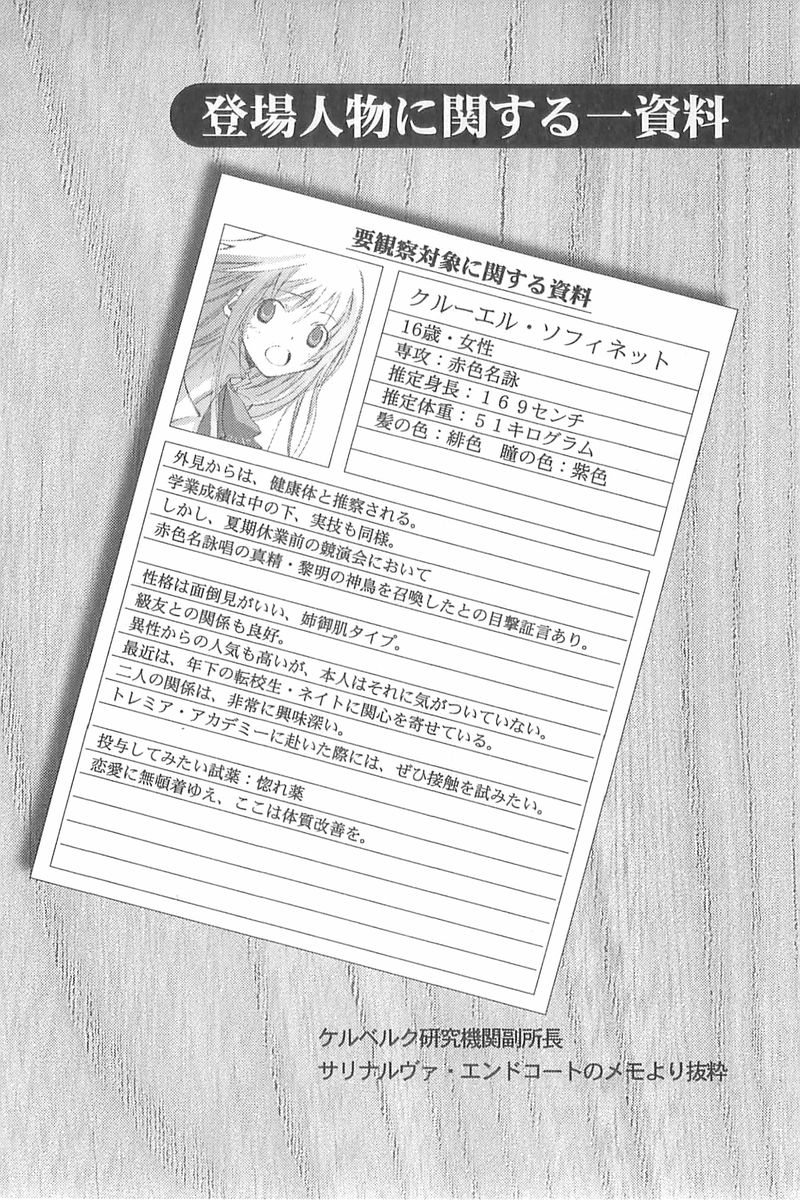 登場人物に関する一資料
要観察対象に関する資料
クルーエル・ソフィネット
16歳・女性
専攻：赤色名詠
推定身長：１６９センチ
推定体重：５１キログラム
髪の色：緋色　瞳の色：紫色
外見からは、健康体と推察される。
学業成績は中の下、実技も同様。
しかし、夏期休業前の競演会において
赤色名詠唱の真精・黎明の神鳥を召喚したとの目撃証言あり。
性格は面倒見がいい、姉御肌タイプ。
級友との関係も良好。
異性からの人気も高いが、本人はそれに気がついていない。
最近は、年下の転校生・ネイトに関心を寄せている。
二人の関係は、非常に興味深い。
トレミア・アカデミーに赴いた際には、ぜひ接触を試みたい。
投与してみたい試薬：惚れ薬
恋愛に無頓着ゆえ、ここは体質改善を。
ケルベルク研究機関副所長
サリナルヴァ・エンドコートのメモより抜粋